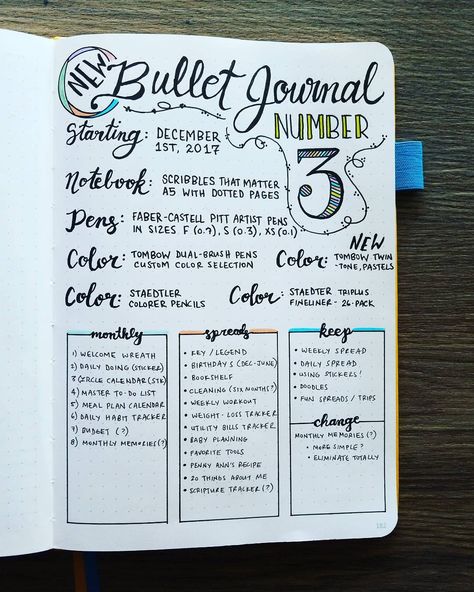 NEW
Bullet Journal
NUMBER
3
Starting: DECEMBER
1ST, 2017
Notebook: SCRIBBLES THAT MATTER
A5 WITH DOTTED PAGES
Pens: FABER-CASTELL PITT ARTIST PENS
IN SIZES F (0.7), S (0.3), XS (0.1)
Color: TOMBOW DUAL-BRUSH PENS
CUSTOM COLOR SELECTION
NEW
Color: TOMBOW TWIN
-TONE, PASTELS
Color: STAEDTLER
COLORER PENCILS
Color: STAEDTER TRIPLUS
FINELINER - 26-PACK
monthly
1) WELCOME WREATH
2) DAILY DOING (STICKER)
3) CIRCLE CALENDAR (STK)
4) MASTER TO-DO LIST
5) MEAL PLAN CALENDAR
6) DAILY HABIT TRACKER
7) BUDGET (?)
8) MONTHLY MEMORIES (?)
spreads
• KEY / LEGEND
• BIRTHDAYS (DEC-JUNE)
• BOOKSHELF
• CLEANING (SIX MONTHS?)
• WEEKLY WORKOUT
• WEIGHT-LOSS TRACKER
• UTILITY BILLS TRACKER
• BABY PLANNING
• FAVORITE TOOLS
• PENNY ANN'S RECIPE
• 20 THINGS ABOUT ME
• SCRIPTURE TRACKER (?)
keep
• WEEKLY SPREAD
• DAILY SPREAD
• USING STICKERS!
• DOODLES
• FUN SPREADS / TRIPS
change
MONTHLY MEMORIES (?)
• MORE SIMPLE?
• ELIMINATE TOTALLY